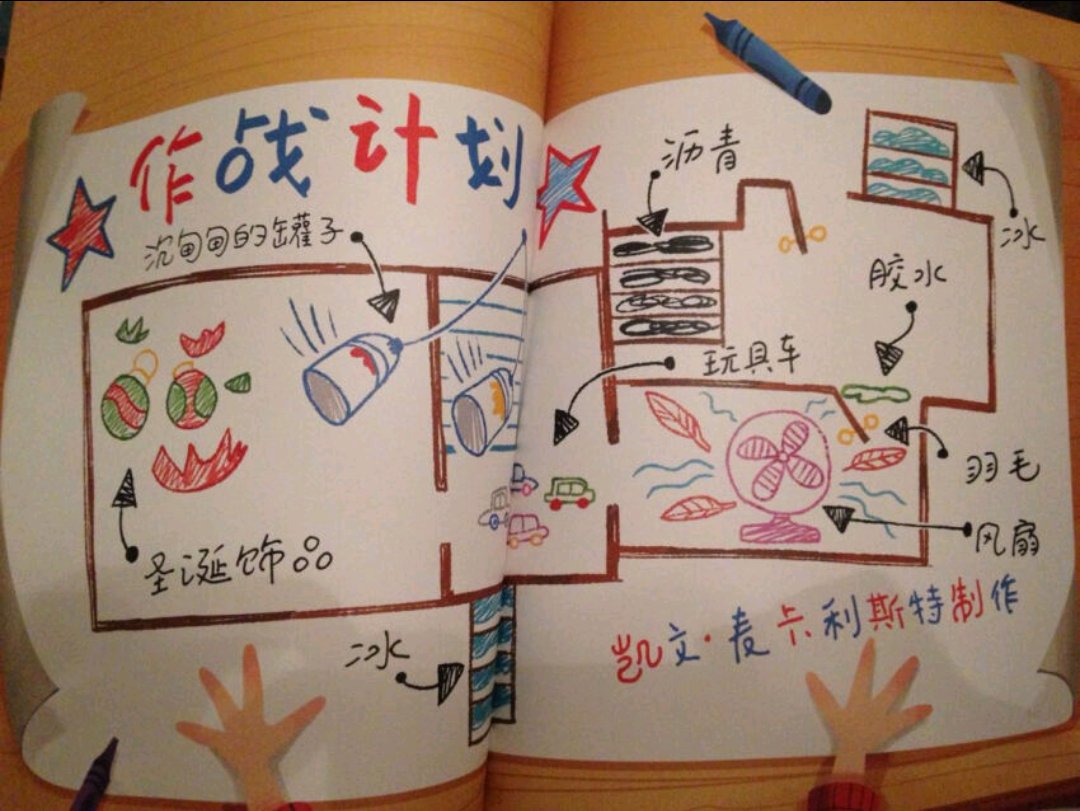 作战计划
沉甸甸的罐子
圣诞饰品
冰
沥青
冰
胶水
玩具车
羽毛
风扇
凯文·麦卡利斯特制作